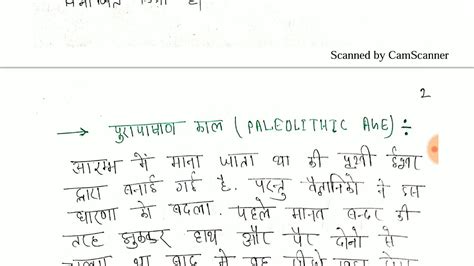 Scanned by CamScanner
2
→ पुरापाषाण काल ( PALEOLITHIC AGE) ÷
प्रारम्भ में माना जाता था की पृथ्वी ईश्वर
द्वारा बनाई गई है. परन्तु वैज्ञानिको ने इस
धारणा को बदला. पहले मानव बन्दर की
तरह झुककर हाथ और पैर दोनो से
चलता था बाद में वह